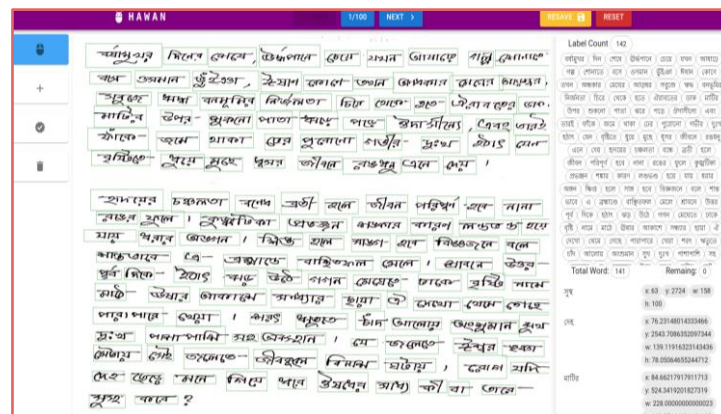 HAWAN
1/100 NEXT > RESAVE RESET
বর্ষামুখর দিনের শেষে, ঊর্ধ্বপানে চেয়ে যখন আষাঢ়ে গল্প শোনাতে
বসে ওসমান ভুঁইঞা, ঈষান কোণে তখন অন্ধকার মেঘের আড়ম্বর,
সবুজে ঋদ্ধ বনভূমির নির্জনতা চিরে থেকে থেকে ঐরাবতের ডাক,
মাটির উপর শুকনো পাতা ঝরে পড়ে ঔদাসীন্যে, এবং তারই
ফাঁকে জমে থাকা ঢের পুরোনো গভীর দুঃখ হঠাৎ যেন
বৃষ্টিতে ধুয়ে মুছে ধূসর জীবনে রঙধনু এনে দেয়।
হৃদয়ের চঞ্চলতা বন্ধে ব্রতী হলে জীবন পরিপূর্ণ হবে নানা
রঙের ফুলে। কুজ্ঝটিকা প্রভঞ্জন শঙ্কার কারণ লণ্ডভণ্ড হয়ে
যায় ধরার অঙ্গন। ক্ষিপ্ত হলে সাঙ্গ হবে বিজ্ঞজনে বলে
শান্তভাবে এ ব্রহ্মাণ্ডে বাঞ্ছিতফল মেলে। শ্রাবণে উত্তর
পূর্ব দিকে হঠাৎ ঝড় উঠে গগন মেঘেতে ঢাকে বৃষ্টি নামে
মাঠে ঊষার আকাশে সন্ধ্যার ছায়া ঐ দেখো থেমে গেছে
পারাপারে খেয়া। শরৎ ঋতুতে চাঁদ আলোয় অংশুমান সুখ
দুঃখ পাশাপাশি সহ অবস্থান। যে জলেতে ঈশ্বর তৃষ্ণা
মেটায় সেই জলেতে জীবকুলে বিনাশ ঘটায়। রোগ যদি
দেহ ছেড়ে মনে গিয়ে ধরে ঔষধের সাধ্য কী বা তারে
সুস্থ করে?
Label Count 142
বর্ষামুখর দিন শেষে ঊর্ধ্বপানে চেয়ে যখন আষাঢ়ে
গল্প শোনাতে বসে ওসমান ভুঁইঞা ঈষান কোণে
Total Word: 141 Remaing: 0
সুস্থ
x: 63 y: 2724 w: 158
h: 100
দেহ
x: 76.23148014333466
y: 2543.7086352097344
w: 139.11916323143436
h: 78.05064655244712
মাটির
x: 84.66217917911713
y: 524.3419201827319
w: 228.00000000000023